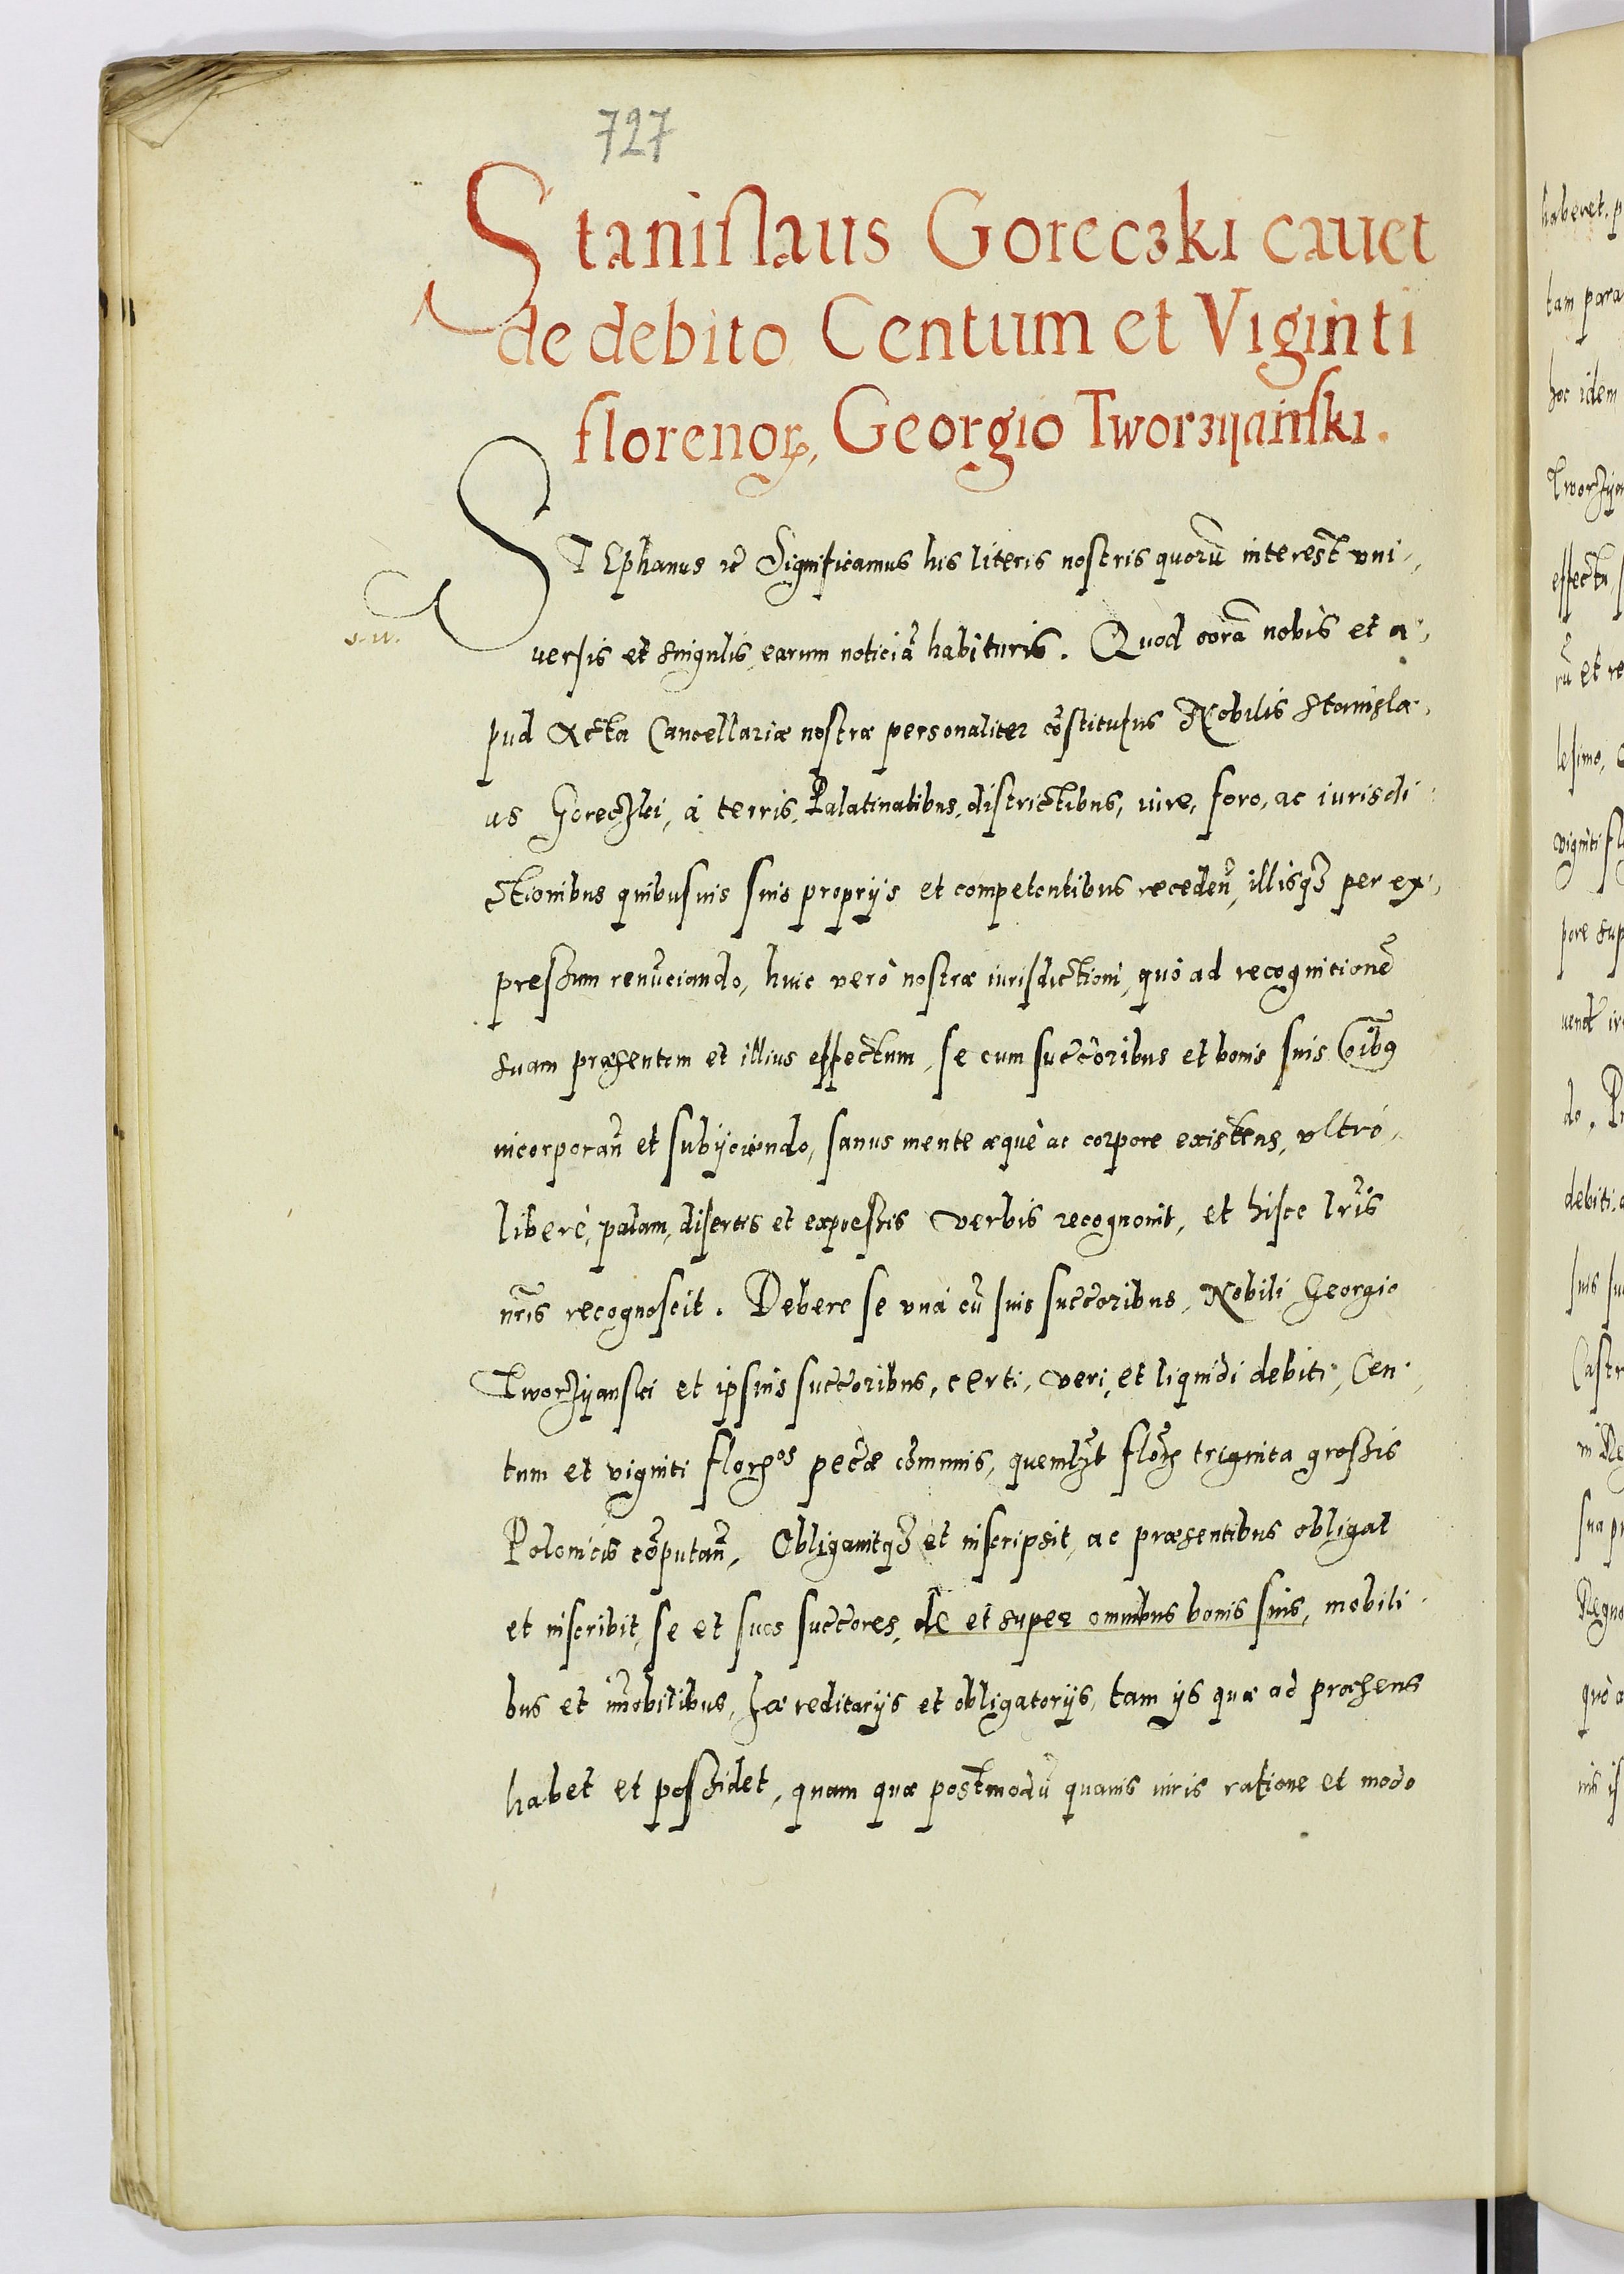 727
Stanislaus Goreczki cauet
de debito Centum et Viginti
florenoꝝ, Georgio Tworzyanski.
STEphanus ꝛc̃ Significamus his literis nostris quorũ interest vni-,
s. u.
uersis et singulis, earum noticiã habituris. Quod corã nobis et a-,
pud Acta Cancellariæ nostræ personaliter cõstitutus Nobilis Stanisla-,
us Goreczki, à terris, Palatinatibus, districtibus, iure, foro, ac iurisdi-
ctionibus quibusuis suis proprijs et competentibus recedeñ, illisq3 per ex-,
pressum renũciando, huic verò nostræ iurisdictioni, quò ad recognitionẽ
suam præsentem et illius effectum, se cum succ̃oribus et bonis suis õibꝯ
incorporañ et subijciendo, sanus mente æquè ac corpore existens, vltrò,
liberè, palam, disertis et expressis verbis recognouit, et hisce lr̃is
nr̃is recognoscit. Debere se vnà cũ suis succ̃oribus, Nobili Georgio
Tworzyanski et ipsius succ̃oribus, certi, veri, et liquidi debiti, Cen-,
tum et viginti floꝝos pec̃æ cõmunis, quemlꝫt floꝝ triginta grossis
Polonicis cõputañ, Obligauitq3 et inscripsit, ac præsentibus obligat
et inscribit, se et suos succ̃ores, de et super omnibus bonis suis, mobili-
bus et im̃obilibus, hæreditarijs et obligatorijs, tam ijs quæ ad præsens
habet et possidet, quam quæ postmodũ quauis iuris ratione et modo